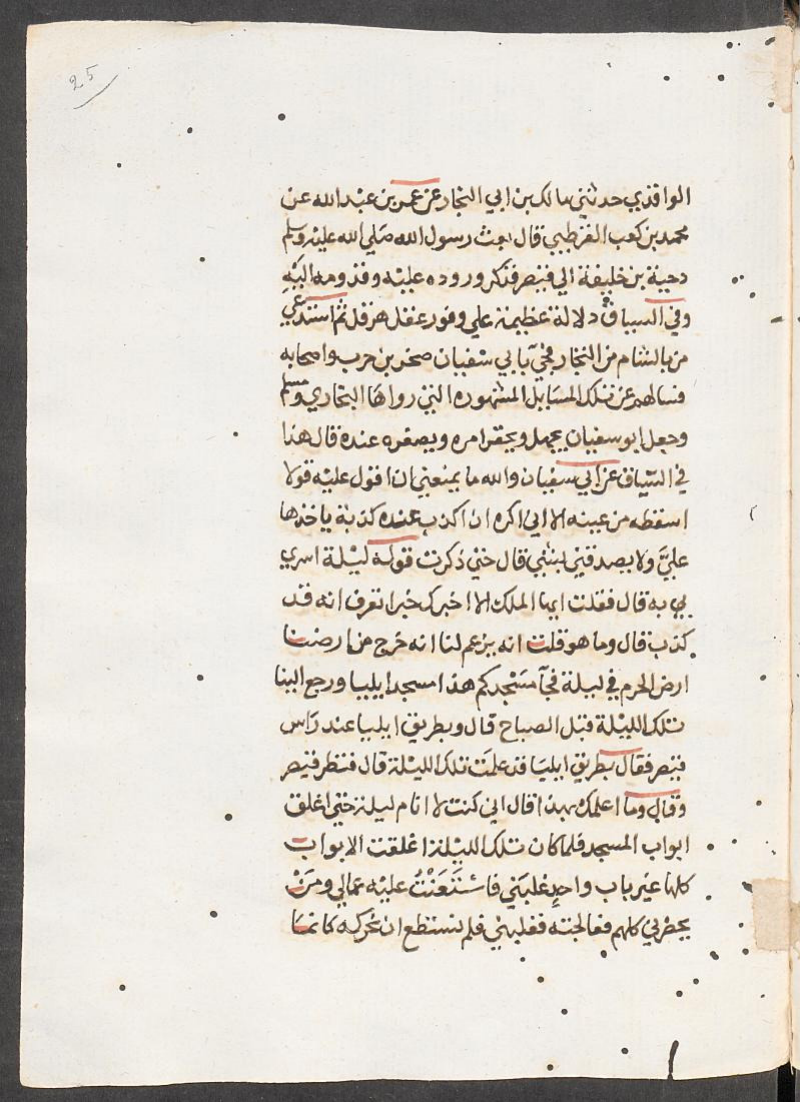 25
الواقدي حدثني مالك بن ابي النجار عن عمر بن عبد الله عن
محمد بن كعب القرطبي قال بعث رسول الله صلي الله عليه وسلم
دحية بن خليفة الي قيصر فذكر وروده عليه وقدومه اليه
وفي السياق دلالة عظيمة علي وفور عقل هرقل ثم استدعي
من بالشام من التجار فجيٓ بابي سفيان صخر بن حرب واصحابه
فسالهم عن تلك المسايل المشهوره التي رواها البخاري ومسلم
وجعل ابو سفيان يجهل ويحقر امره ويصغره عنده قال هذا
في السياق عن ابي سفيان والله ما يمنعني ان اقول عليه قولا
اسقطه من عينه الا اني اكره ان اكذب عنده كذبة ياخذها
عليَّ ولا يصدقني بشي قال حتي ذكرت قوله ليلة اسري
به قال فقلت ايها الملك الا اخبرك خبرا تعرف انه قد
كذب قال وما هو قلت انه يزعم لنا انه خرج من ارضنا
ارض الحرم في ليلة فجآ مسجدكم هذا مسجد ايليا ورجع الينا
تلك الليلة قبل الصباح قال وبطريق ايليا عند راس
قيصر فقال بطريق ايليا قد علمت تلك الليلة قال فنظر قيصر
وقال وما اعلمك بهذا قال اني كنت لا انام ليلة حتي اغلق
ابواب المسجد فلما كان تلك الليلة اغلقت الابواب
كلها غير باب واحد غلبني فاستَعَنْتُ عليه عمالي ومَنْ
يحضرني كلهم فعالجته فغلبني فلم نستطع ان نحركه كانما